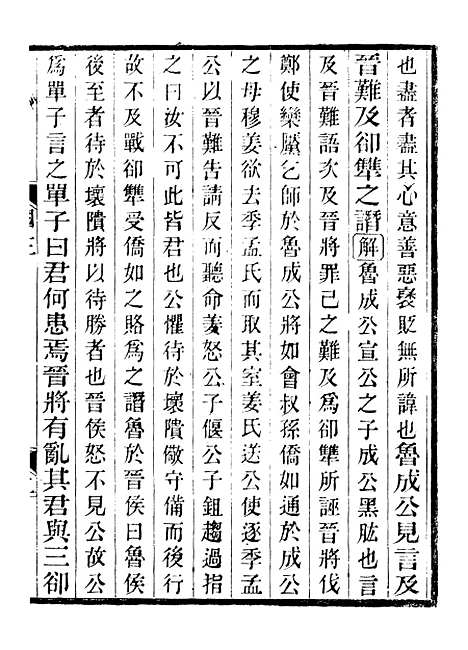 也盡者盡其心意善惡褒貶無所諱也魯成公見言及
晉難及卻犨之譖解魯成公宣公之子成公黑肱也言
及晉難語次及晉將罪己之難及為卻犨所誣晉將伐
鄭使欒黶乞師於魯成公將如會叔孫僑如通於成公
之母穆姜欲去季孟氏而取其室姜氏送公使逐季孟
公以晉難告請反而聽命姜怒公子偃公子鉏趨過指
之曰汝不可此皆君也公懼待於壞隤儆守備而後行
故不及戰卻犨受僑如之賂為之譖魯於晉侯曰魯侯
後至者待於壞隤將以待勝者也晉侯怒不見公故公
為單子言之單子曰君何患焉晉將有亂其君與三卻